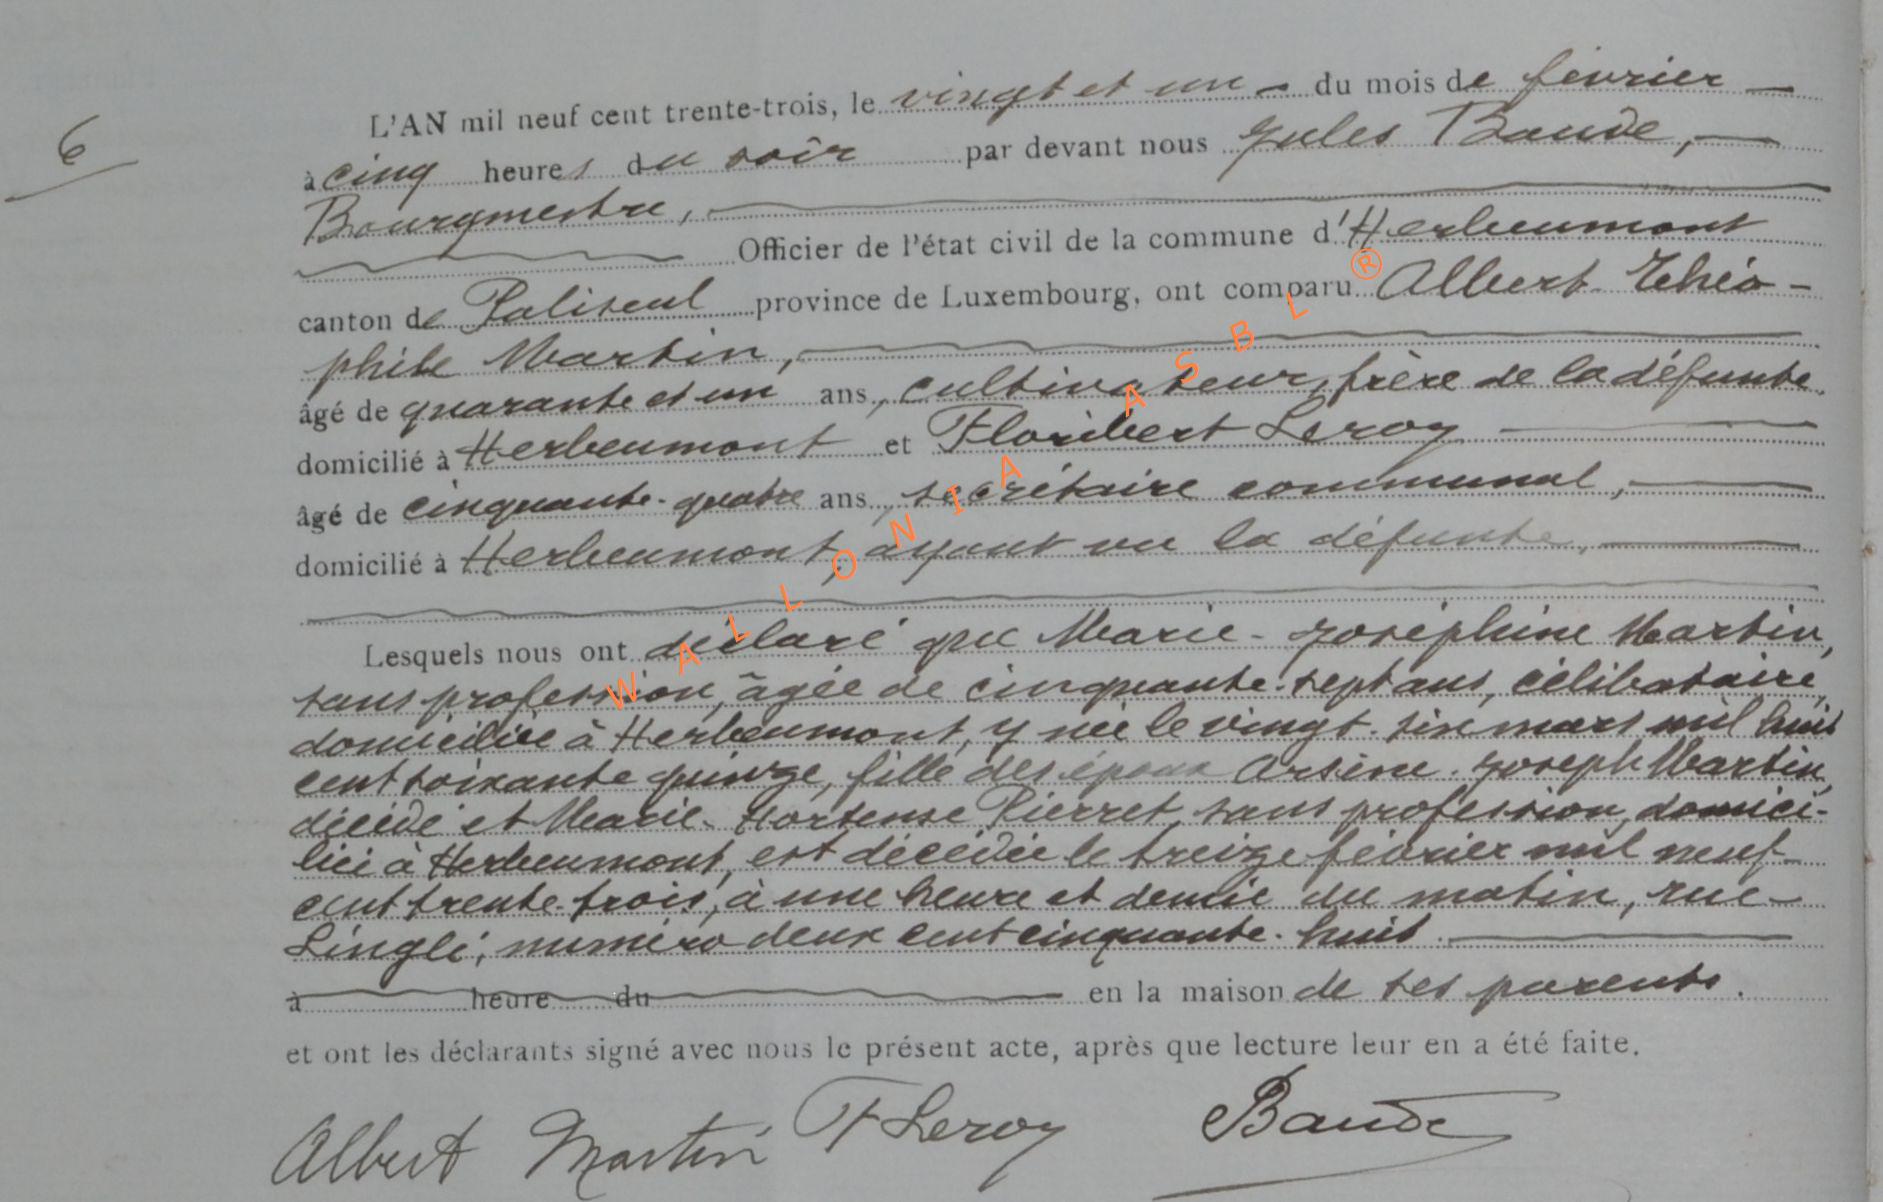 6
L'AN mil neuf cent trente-trois, le vingt et un - du mois de février -
à cinq heures du soir par devant nous Jules Baude, -
Bourgmestre,
Officier de l'état civil de la commune d'Herbeumont
canton de Paliseul province de Luxembourg, ont comparu Albert Théo-
phile Martin,
âgé de quarante et un ans, cultivateur, frère de la défunte,
domicilié à Herbeumont et Floribert Leroy
âgé de cinquante-quatre ans, secrétaire communal,
domicilié à Herbeumont, ayant vu la défunte,
Lesquels nous ont déclaré que Marie-Joséphine Martin,
sans profession, âgée de cinquante-sept ans, célibataire,
domiciliée à Herbeumont, y née le vingt-six mars mil huit
cent soixante quinze, fille des époux Arsène-Joseph Martin,
décédé et Marie-Hortense Pierret, sans profession, domici-
liée à Herbeumont, est décédée le treize février mil neuf
cent trente-trois, à une heure et demie du matin, rue
Linglé, numéro deux cent cinquante-huit.
à heure du en la maison de ses parents.
et ont les déclarants signé avec nous le présent acte, après que lecture leur en a été faite.
Albert Martin F Leroy Baude
WALLONIA ASBL ®